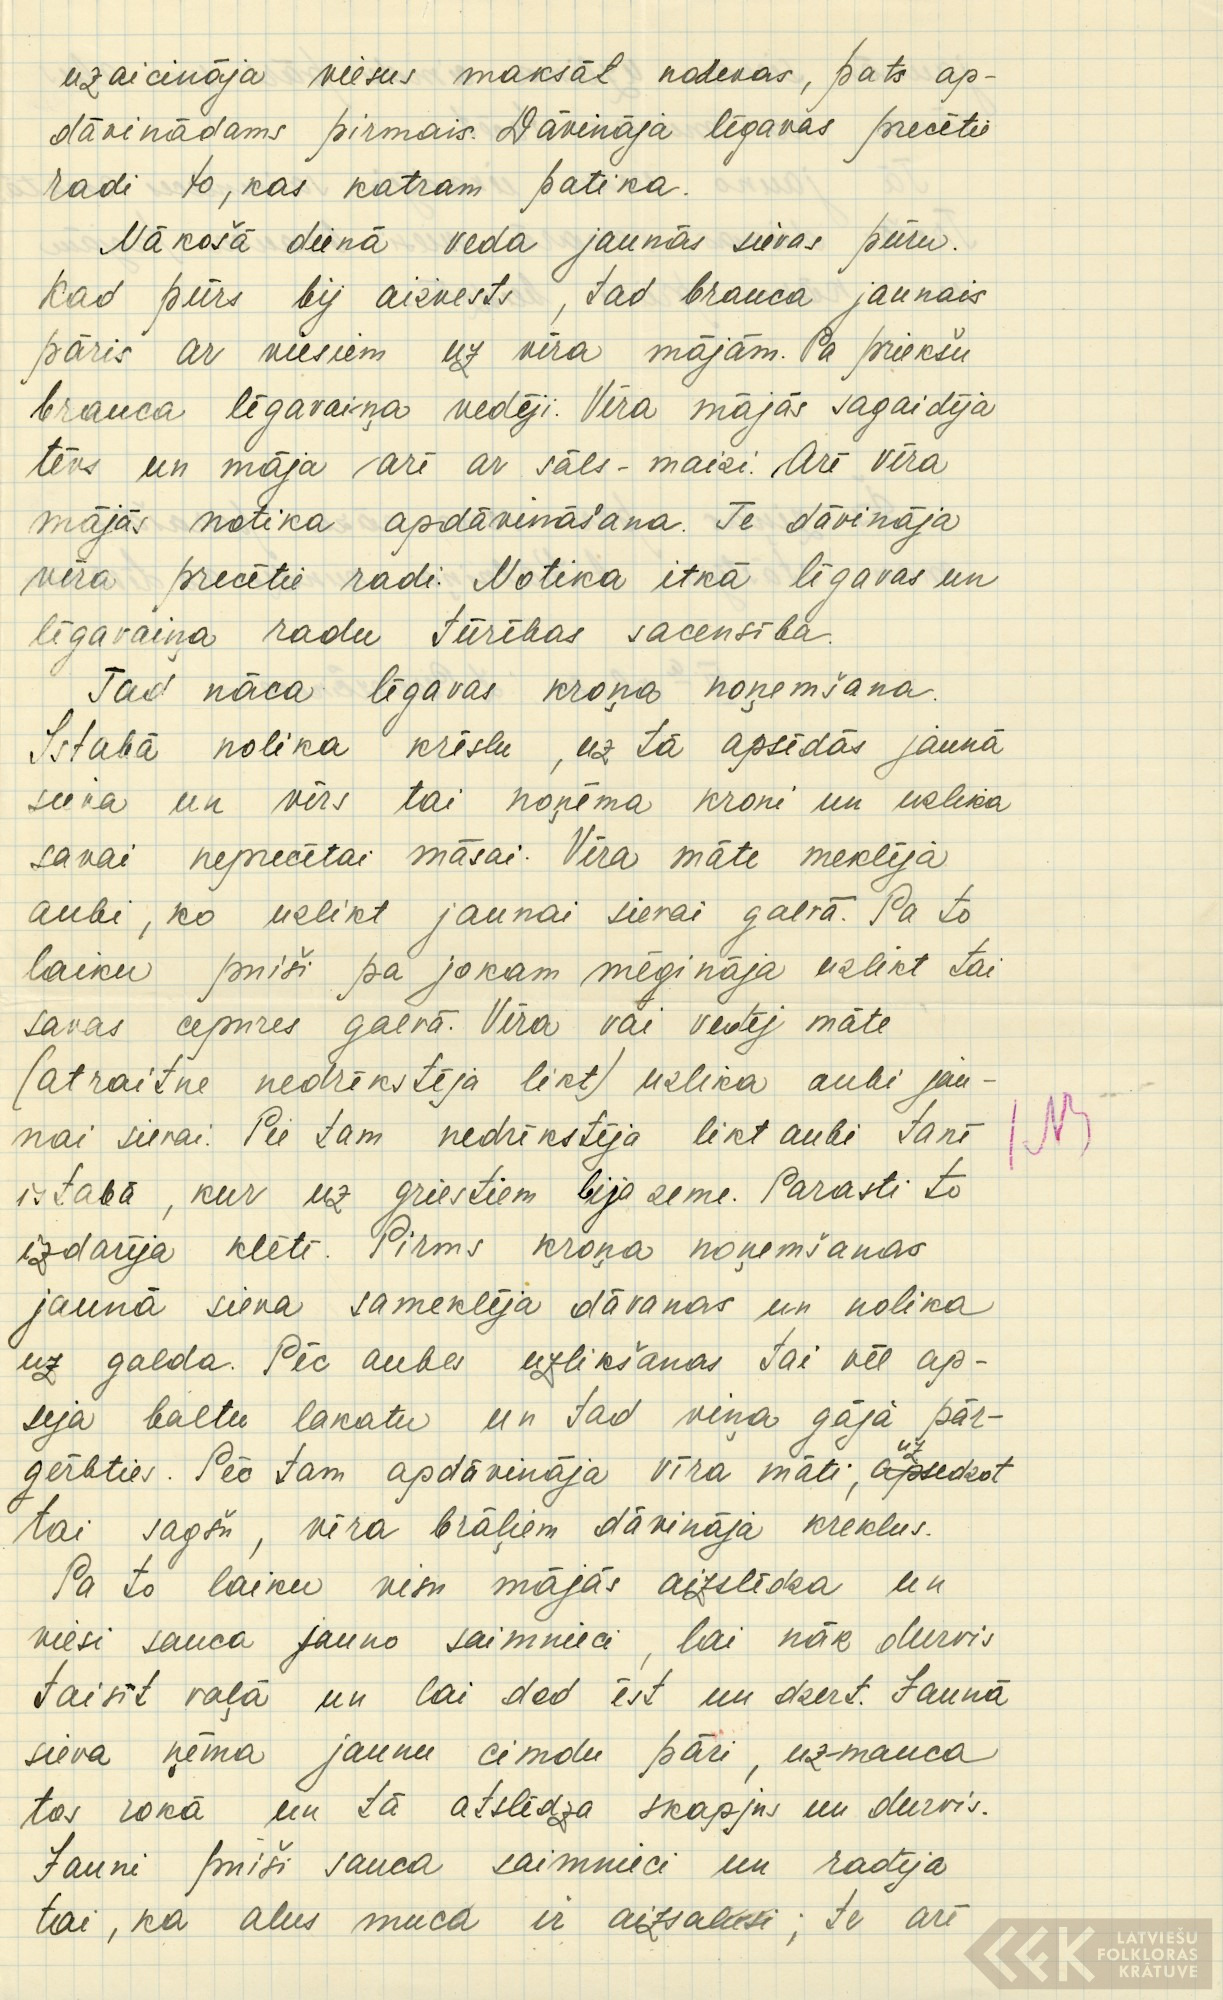 uzaicināja viesus maksāt nodevas, pats ap-
dāvinādams pirmais. Dāvināja līgavas precētie
radi to, kas katram patika.
Nākošā dienā veda jaunās sievas pūru.
Kad pūrs bij aizvests, tad brauca jaunais
pāris ar viesiem uz vīra mājām. Pa priekšu
brauca līgavaiņa vedēji. Vīra mājās sagaidīja
tēvs un māja arī ar sāls-maizi. Arī vīra
mājās notika apdāvināšana. Te dāvināja
vīra precētie radi. Notika itkā līgavas un
līgavaiņa radu tūrības sacensība.
Tad nāca līgavas kroņa noņemšana.
Istabā nolika krēslu, uz tā apsēdās jaunā
sieva un vīrs tai noņēma kroni un uzlika
savai neprecētai māsai. Vīra māte meklēja
aubi, ko uzlikt jaunai sievai galvā. Pa to
laiku puiši pa jokam mēģināja uzlikt tai
savas cepures galvā. Vīra vai vedēj māte
(atraitne nedrīkstēja likt) uzlika aubi jau-
nai sievai. Pie tam nedrīkstēja likt aubi tanī
istabā, kur uz griestiem bija zeme. Parasti to
izdarīja klētī. Pirms kroņa noņemšanas
jaunā sieva sameklēja dāvanas un nolika
uz galda. Pēc aubes uzlikšanas tai vēl ap-
sēja baltu lakatu un tad viņa gāja pār-
ģērbties. Pēc tam apdāvināja vīra māti, uz
apsedzot
tai sagšu, vīra brāļiem dāvināja kreklus.
Pa to laiku visu mājās aizslēdza un
viesi sauca jauno saimnieci, lai nāk durvis
taisīt vaļā un lai dod ēst un dzert. Jaunā
sieva ņēma jaunu cimdu pāri, uzmauca
tos rokā un tā atslēdza skapjus un durvis.
Jauni puiši sauca saimnieci un rādīja
tai, ka alus muca ir aizsalusi; te arī
LATVIEŠU
FOLKLORAS
KRĀTUVE